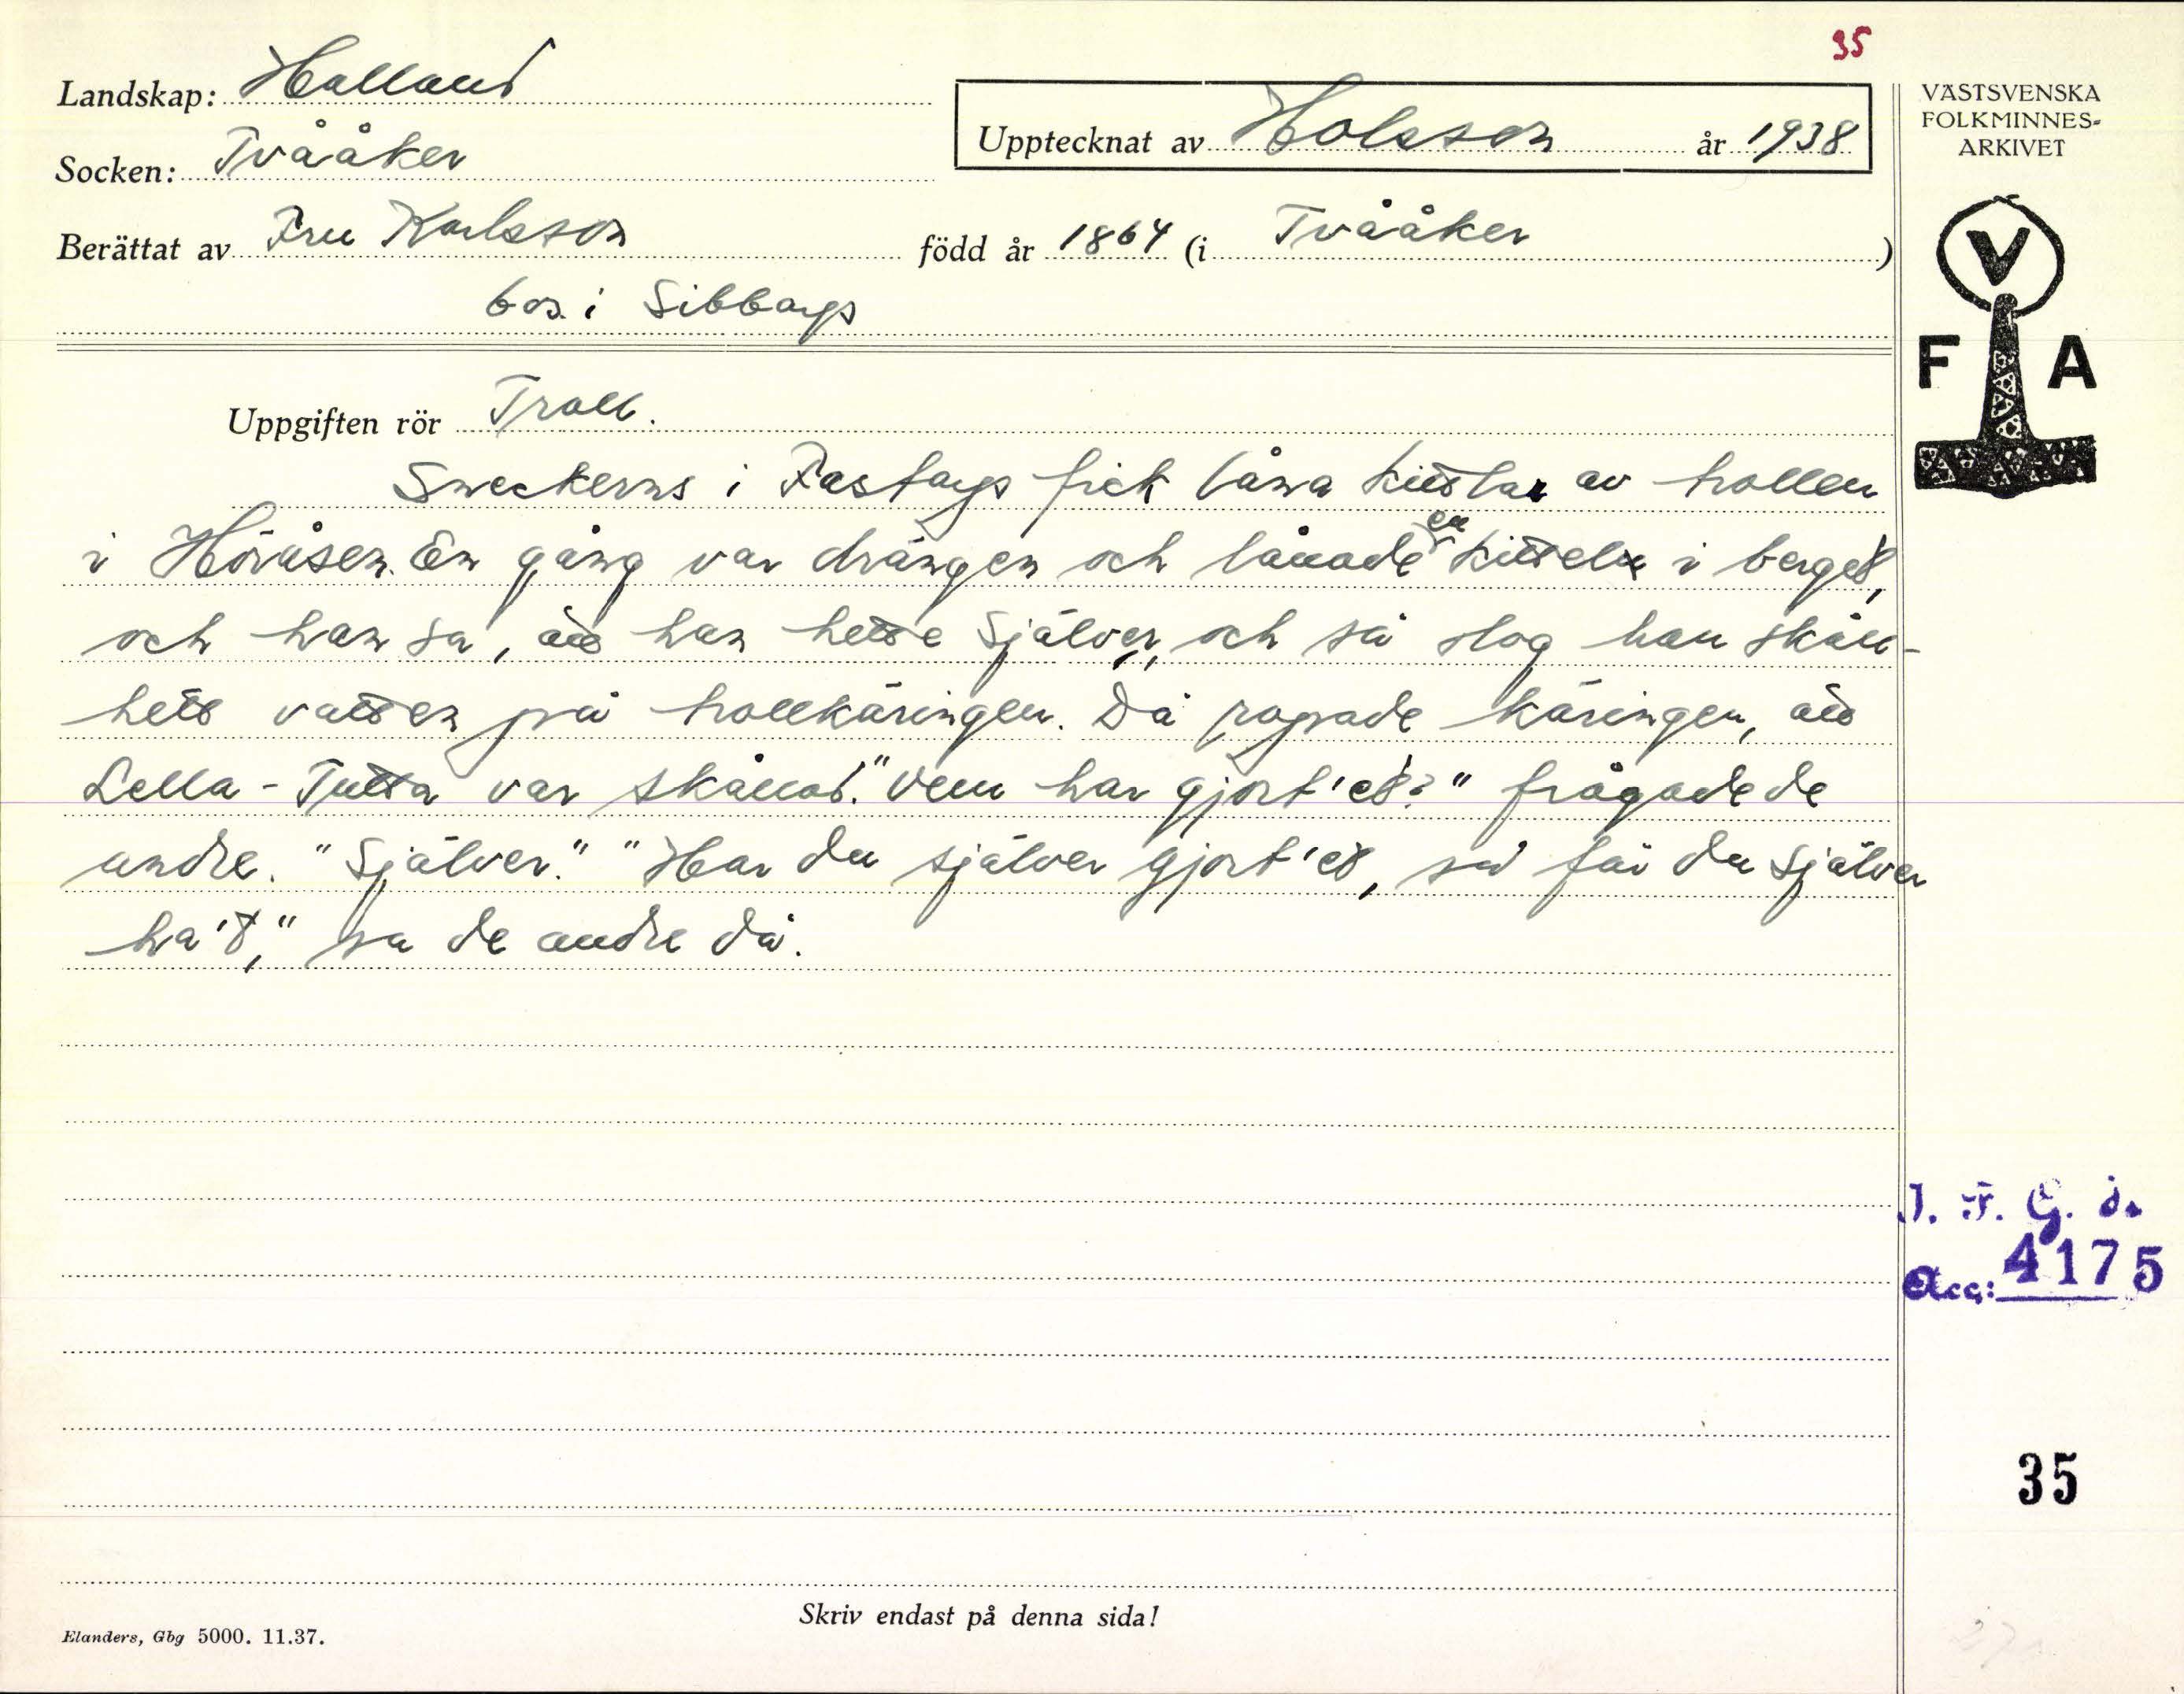 35
Landskap: Halland
Upptecknat av Holsson år 1938
VÄSTSVENSKA
FOLKMINNES-
ARKIVET
Socken: Tvååker
Berättat av Fru Karlsson född år 1864 (i Tvååker)
bos. i Sibbarp
V
F A
Uppgiften rör Troll.
Sneckerns i Fastarp fick låna kittlar av trollen
i Höråsen. En gång var drängen och lånade en kittel i berget,
och han sa, att han hette Själver, och så slog han skåll-
hett vatten på trollkäringen. Då ropade käringen, att
Lella-Tutta var skållad. "Vem har gjort'et?" frågade de
andre. "Själver." "Har du själver gjort'et, så får du själver
ha't," sa de andre då.
I. F. G. s.
Acc: 4175
35
Skriv endast på denna sida!
Elanders, Gbg 5000. 11.37.